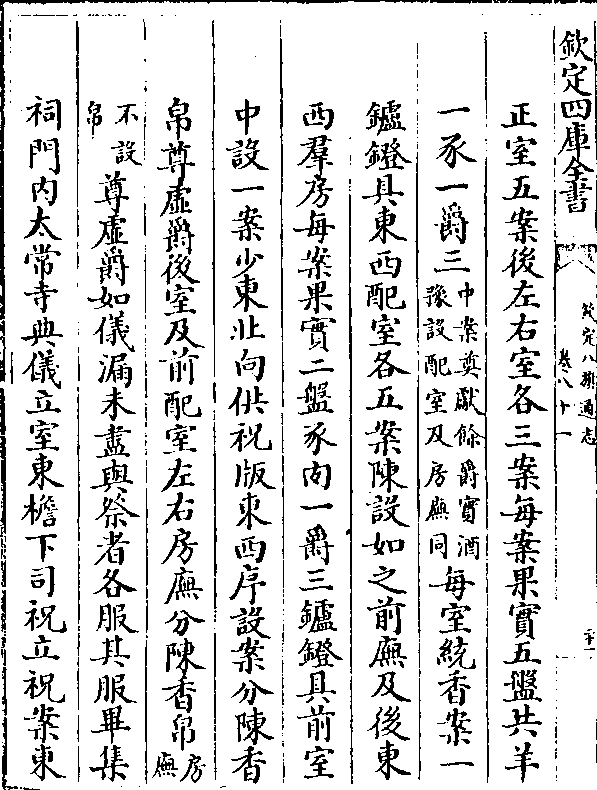 欽定四庫全書
欽定八旗通志
卷八十一
正室五案後左右室各三案每案果實五盤共羊
一豕一爵三中案奠獻餘爵實酒豫設配室及房廡同每室統香案一
鑪鐙具東西配室各五案陳設如之前廡及後東
西羣房每案果實二盤豕肉一爵三鑪鐙具前室
中設一案少東北向供祝版東西序設案分陳香
帛尊虛爵後室及前配室左右房廡分陳香帛房廡
不設帛尊虛爵如儀漏未盡與祭者各服其服畢集
祠門內太常寺典儀立室東檐下司祝立祝案東